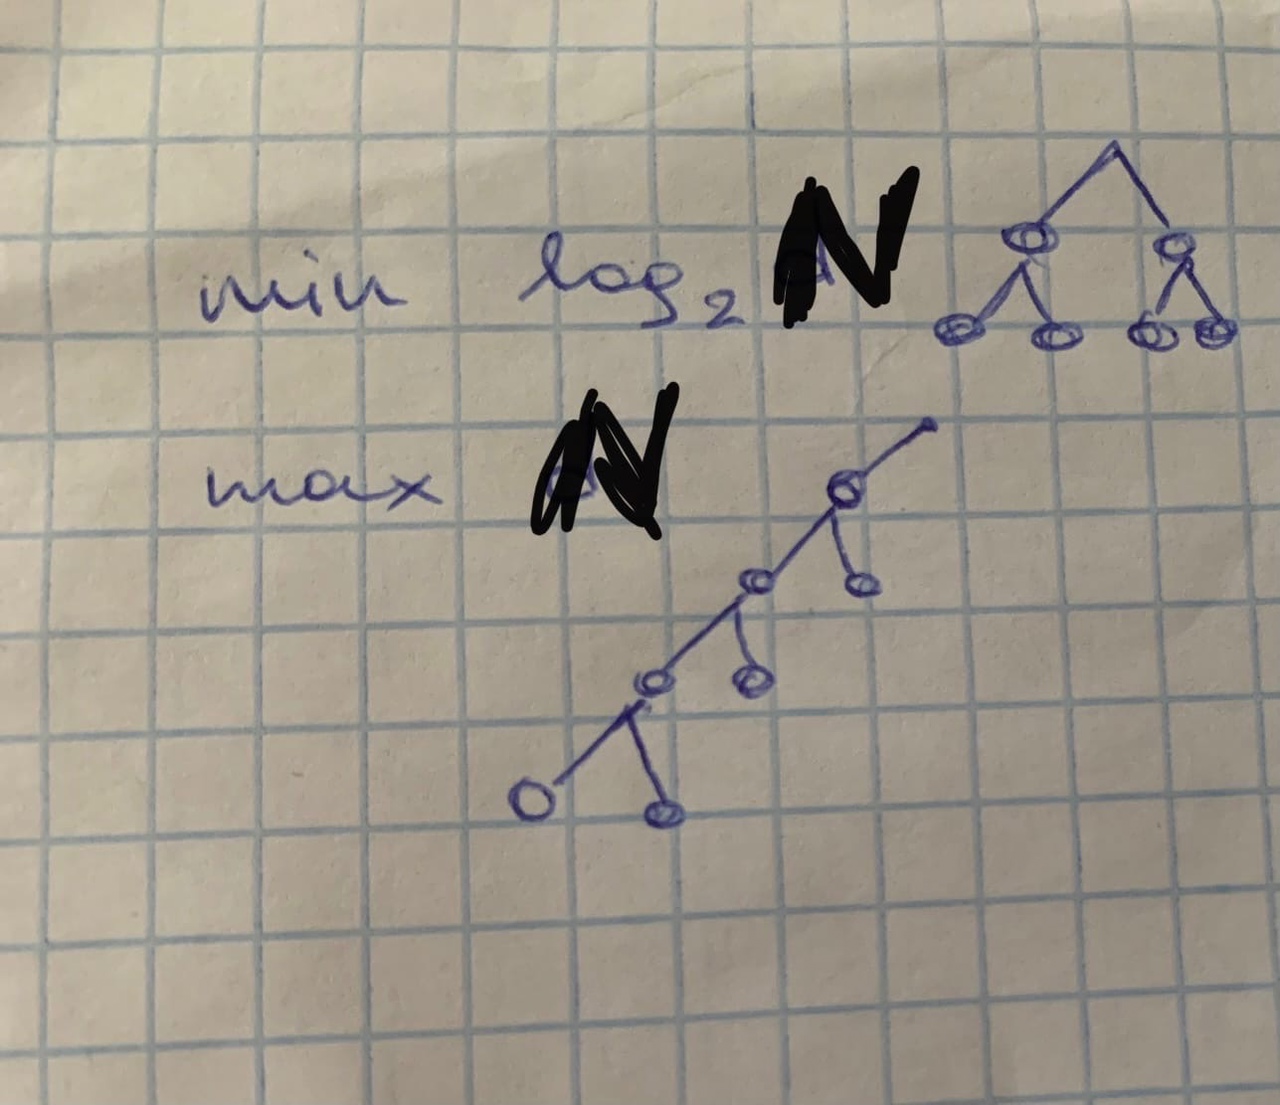 min log₂ N
max N